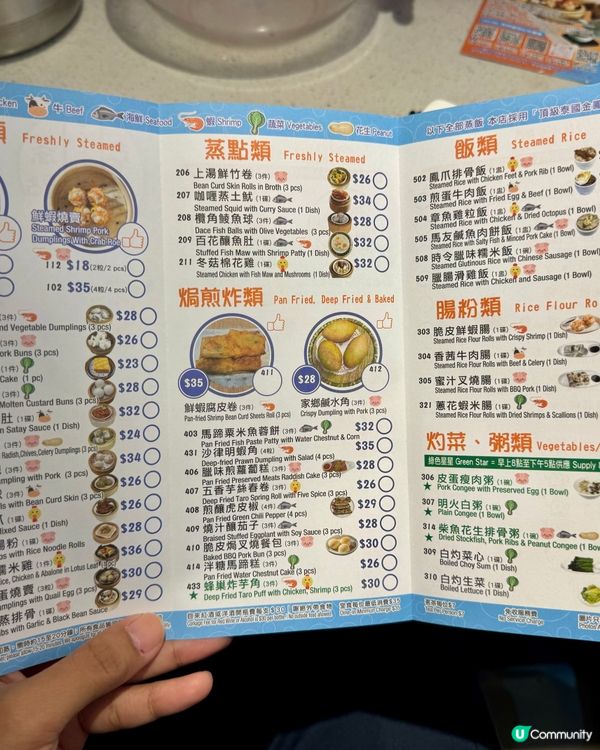 cken 牛 Beef 海鮮 Seafood 蝦 Shrimp 蔬菜 Vegetables 花生 Peanut
類 Freshly Steamed
鮮蝦燒賣
Steamed Shrimp Pork
Dumplings With Crab Roe
112 $18(2粒/2 pcs)
102 $35(4粒/4 pcs)
(3件)
nd Vegetable Dumplings (3 pcs)
$28
(3件)
ork Buns (3 pcs)
$26
(1件)
Cake (1 pc)
$23
(3件)
Molten Custard Buns (3 pcs)
$28
肚 (1碟)
n Satay Sauce (1 Dish)
$32
Radish,Chives,Celery Dumplings (3 pcs)
$24
(3件)
mpling with Pork (3 pcs)
$34
(3件)
lls with Bean Curd Skin (3 pcs)
$26
(1碟)
ixed Sauce (1 Dish)
$28
腸粉 (1碟)
bs with Rice Noodle Rolls
$36
糯米雞 (1件)
Rice, Chicken & Abalone in Lotus Leaf (1 pc)
$30
蛋燒賣 (3粒)
umplings with Quail Egg (3 pcs)
$28
蒸排骨 (1碟)
bs with Garlic & Black Bean Sauce
$29
蒸點類 Freshly Steamed
206 上湯鮮竹卷 (3件)
Bean Curd Skin Rolls in Broth (3 pcs)
$26
207 咖喱蒸土魷 (1碟)
Steamed Squid with Curry Sauce (1 Dish)
$34
208 欖角鯪魚球 (3件)
Dace Fish Balls with Olive Vegetables (3 pcs)
$28
209 百花釀魚肚 (1碟)
Stuffed Fish Maw with Shrimp Patty (1 Dish)
$32
211 冬菇棉花雞 (1碟)
Steamed Chicken with Fish Maw and Mushrooms (1 Dish)
$32
焗煎炸類 Pan Fried, Deep Fried & Baked
$35
411
$28
412
鮮蝦腐皮卷 (3件)
Pan-fried Shrimp Bean Curd Sheets Roll (3 pcs)
家鄉鹹水角 (3件)
Crispy Dumpling with Pork (3 pcs)
403 馬蹄粟米魚蓉餅 (3件)
Pan Fried Fish Paste Patty with Water Chestnut & Corn
$32
431 沙律明蝦角 (4件)
Deep-fried Prawn Dumpling with Salad (4 pcs)
$35
406 臘味煎蘿蔔糕 (3件)
Pan Fried Preserved Meats Raddish Cake (3 pcs)
$28
407 五香芋絲春卷 (3件)
Deep Fried Taro Spring Roll with Five Spice (3 pcs)
$26
408 煎釀虎皮椒 (4件)
Pan Fried Green Chili Pepper (4 pcs)
$29
409 燒汁釀茄子 (3件)
Braised Stuffed Eggplant with Soy Sauce (3 pcs)
$28
410 脆皮焗叉燒餐包 (3件)
Baked BBQ Pork Bun (3 pcs)
$30
414 泮糖馬蹄糕 (3件)
Pan Fried Water Chestnut Cake (3 pcs)
$26
433 蜂巢炸芋角 (3件)
★ Deep Fried Taro Puff with Chicken, Shrimp (3 pcs)
$30
自來紅酒或洋酒開瓶費每支$30 謝絕外帶食物
No outside food allowed
堂食每位最低消費$35
以下全部蒸飯 本店採用「頂級泰國金鳳
飯類 Steamed Rice
502 鳳爪排骨飯 (1盅)
Steamed Rice with Chicken Feet & Pork Rib (1 Bowl)
503 煎蛋牛肉飯 (1盅)
Steamed Rice with Fried Egg & Beef (1 Bowl)
504 章魚雞粒飯 (1盅)
Steamed Rice with Chicken & Dried Octopus (1 Bowl)
505 馬友鹹魚肉餅飯 (1盅)
Steamed Rice with Salty Fish & Minced Pork Cake (1 Bowl)
508 時令臘味糯米飯 (1碗)
Steamed Glutinous Rice with Chinese Sausage (1 Bowl)
509 臘腸滑雞飯 (1盅)
Steamed Rice with Chicken and Sausage (1 Bowl)
腸粉類 Rice Flour Ro
303 脆皮鮮蝦腸 (1碟)
Steamed Rice Flour Rolls with Crispy Shrimp (1 Dish)
304 香茜牛肉腸 (1碟)
Steamed Rice Flour Rolls with Beef & Celery (1 Dish)
305 蜜汁叉燒腸 (1碟)
Steamed Rice Flour Rolls with BBQ Pork (1 Dish)
321 蔥花蝦米腸 (1碟)
Steamed Rice Flour Rolls with Dried Shrimps & Scallions (1 Dish)
灼菜、粥類 Vegetables/
綠色星星 Green Star = 早上8點至下午5點供應 Supply
306 皮蛋瘦肉粥 (1碗)
★ Pork Congee with Preserved Egg (1 Bowl)
307 明火白粥 (1碗)
★ Plain Congee (1 Bowl)
314 柴魚花生排骨粥 (1碗)
★ Dried Stockfish, Pork Ribs & Peanut Congee (1 Bowl)
309 白灼菜心 (1碟)
Boiled Choy Sum (1 Dish)
310 白灼生菜 (1碟)
Boiled Lettuce (1 Dish)
免收服務費
No Service Charge
U Community